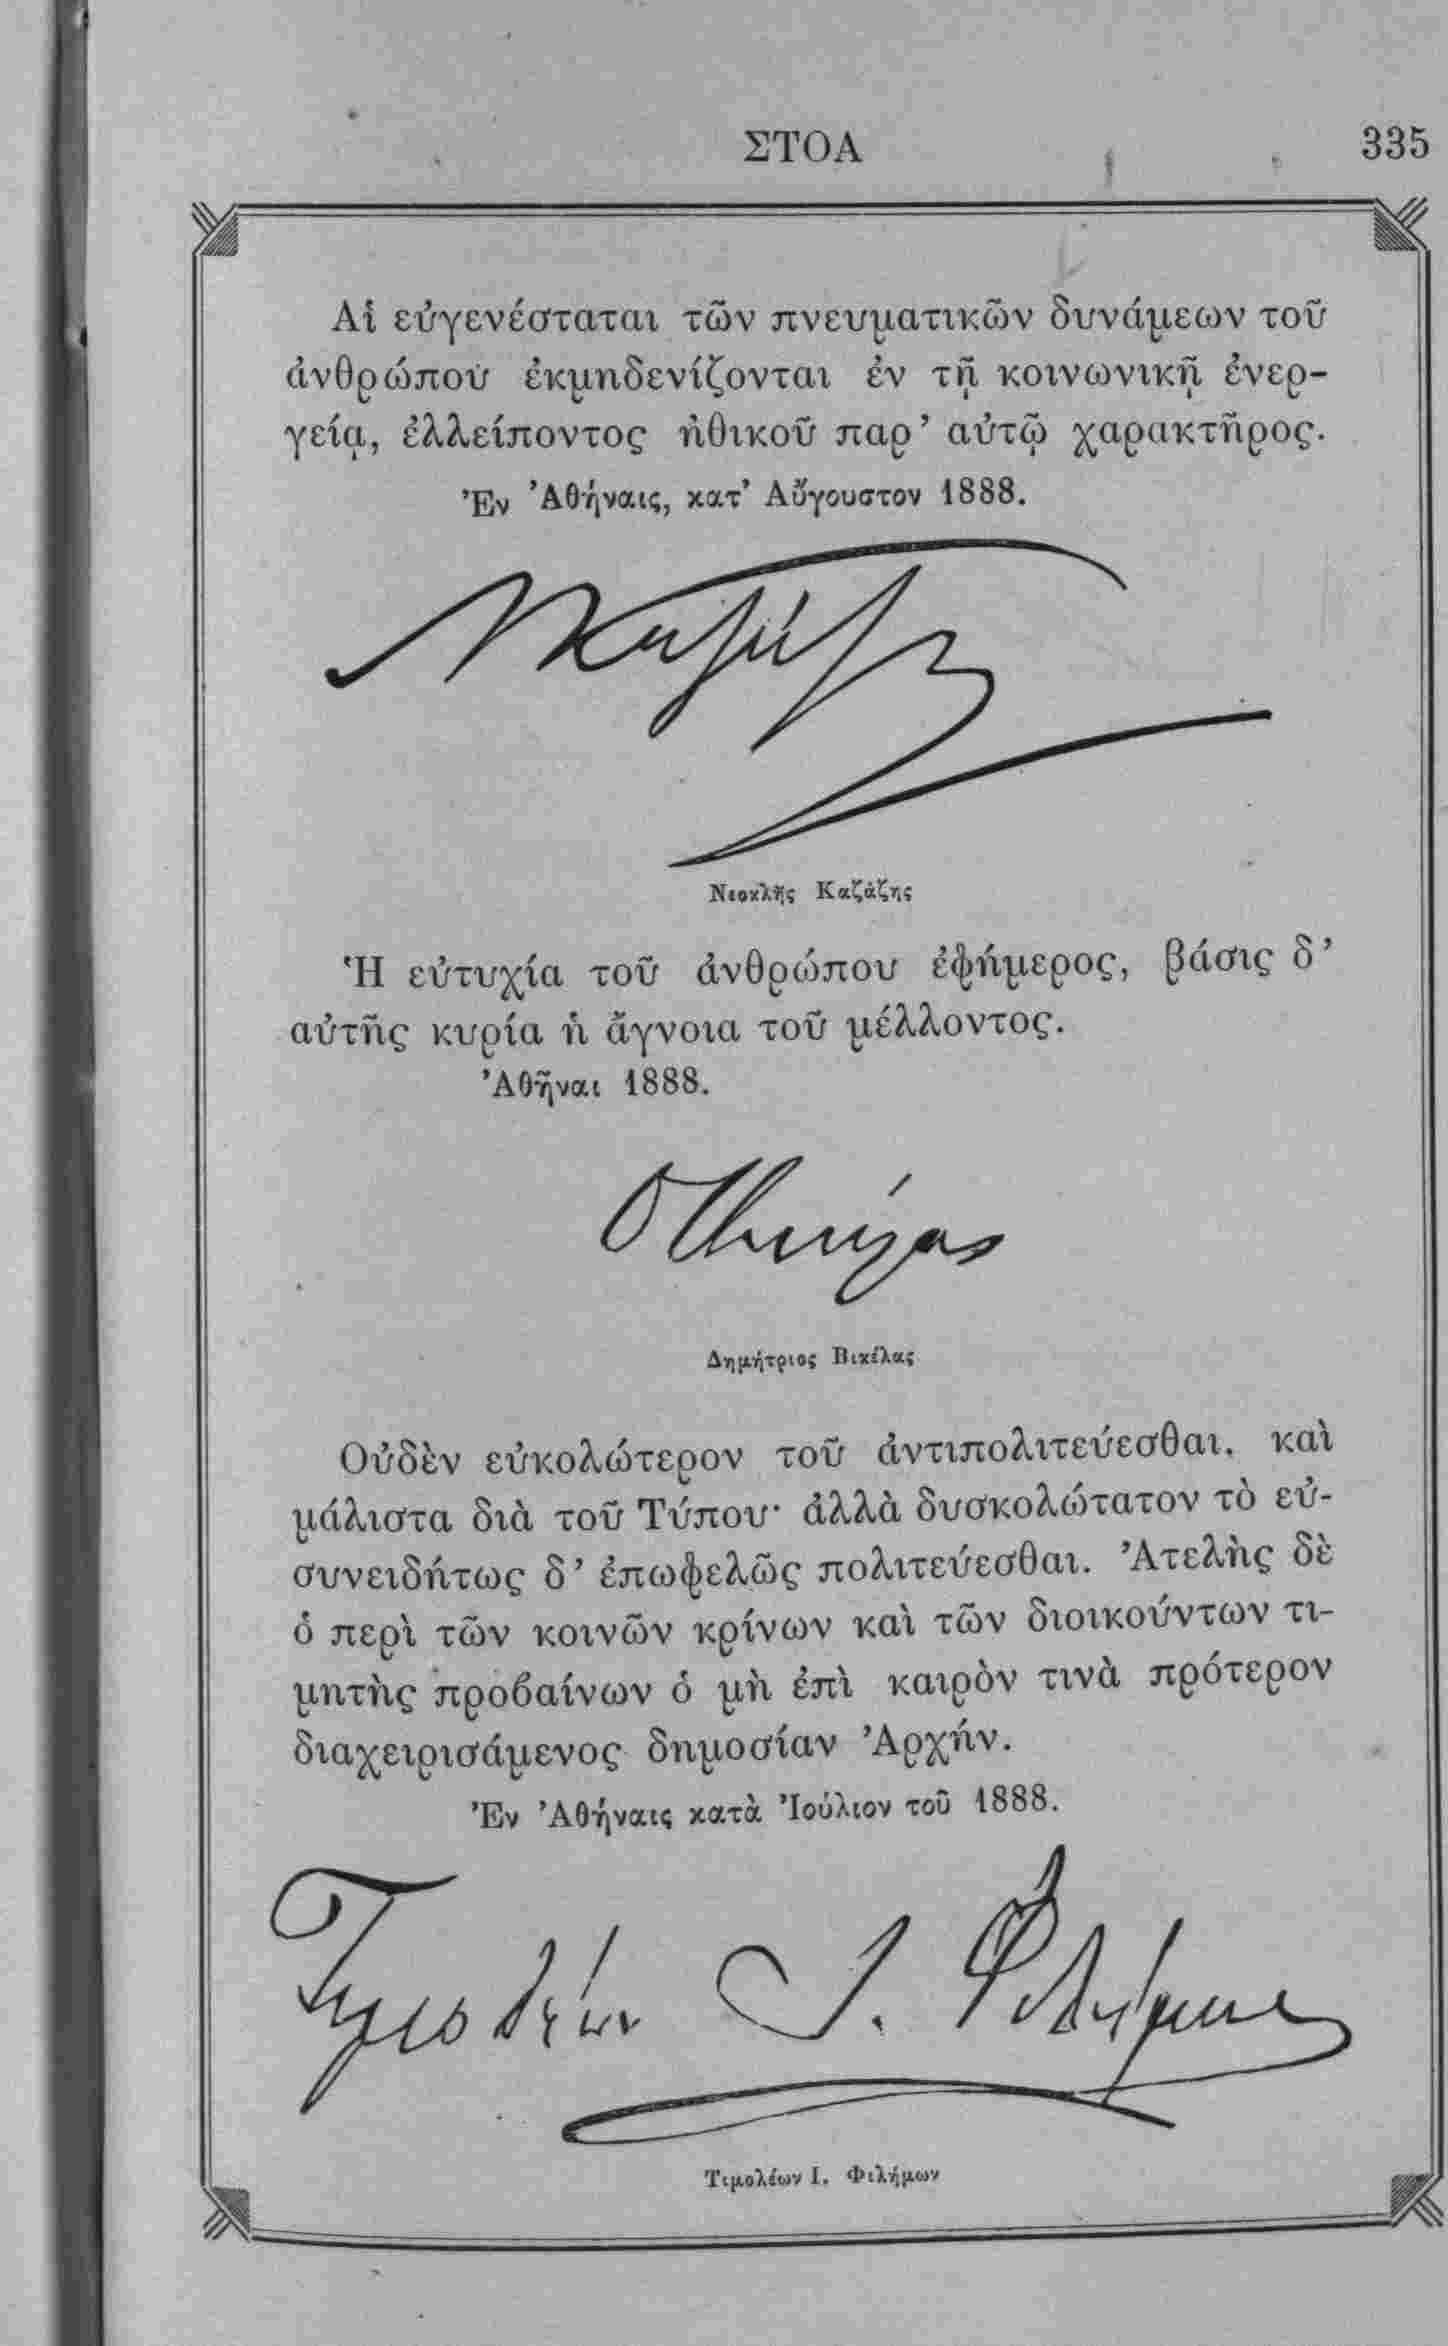 ΣΤΟΑ 335
Αἱ εὐγενέσταται τῶν πνευματικῶν δυνάμεων τοῦ
ἀνθρώπου ἐκμηδενίζονται ἐν τῇ κοινωνικῇ ἐνερ-
γείᾳ, ἐλλείποντος ἠθικοῦ παρ’ αὐτῷ χαρακτῆρος.
Ἐν Ἀθήναις, κατ’ Αὔγουστον 1888.
ΝΚαζάζης
Νεοκλῆς Καζάζης
Ἡ εὐτυχία τοῦ ἀνθρώπου ἐφήμερος, βάσις δ’
αὐτῆς κυρία ἡ ἄγνοια τοῦ μέλλοντος.
Ἀθῆναι 1888.
Δ Βικέλας
Δημήτριος Βικέλας
Οὐδὲν εὐκολώτερον τοῦ ἀντιπολιτεύεσθαι, καὶ
μάλιστα διὰ τοῦ Τύπου· ἀλλὰ δυσκολώτατον τὸ εὐ-
συνειδήτως δ’ ἐπωφελῶς πολιτεύεσθαι. Ἀτελὴς δὲ
ὁ περὶ τῶν κοινῶν κρίνων καὶ τῶν διοικούντων τι-
μητὴς προβαίνων ὁ μὴ ἐπὶ καιρὸν τινὰ πρότερον
διαχειρισάμενος δημοσίαν Ἀρχήν.
Ἐν Ἀθήναις κατὰ Ἰούλιον τοῦ 1888.
Τιμολέων Ι. Φιλήμων
Τιμολέων Ι. Φιλήμων